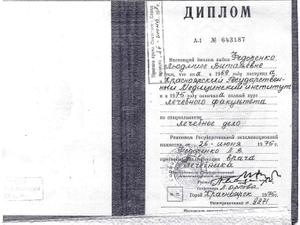 ДИПЛОМ
А-I № 643187
Настоящий диплом выдан Федоренко
Людмиле Витальевне
в том, что она в 1969 году поступила
в Красноярский Государствен-
ный Медицинский институт
и в 1975 году окончила полный курс
лечебного факультета
по специальности
лечебное дело
Решением Государственной экзаменационной
комиссии от 26 июня 1975 г.
Федоренко Л.В.
присвоена квалификация врача
лечебника
Город Красноярск 1975 г.
Регистрационный №